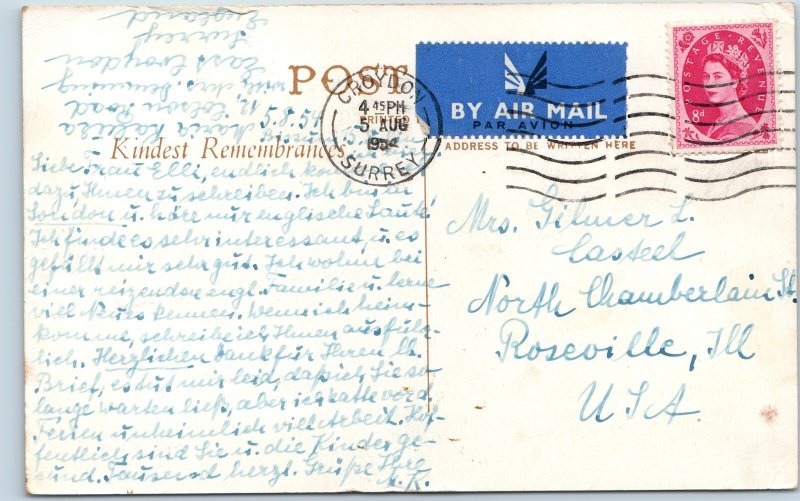 POST
PRINTED
Kindest Remembrances
ADDRESS TO BE WRITTEN HERE
BY AIR MAIL
PAR AVION
POSTAGE REVENUE
8d
CROYDON
4 45 PM
5 AUG
1954
SURREY
5.8.54
Liebe Frau Elli, endlich komme
dazu, Ihnen zu schreiben. Ich bin in
London u. höre nur englische Laute!
Ich finde es sehr interessant, u. es
gefällt mir sehr gut. Ich wohne bei
einer reizenden engl. Familie u. lerne
viel Neues kennen. Wenn ich heim-
komme, schreibe ich Ihnen ausführ-
lich. Herzlichen Dank für Ihren lb.
Brief, es tut mir leid, daß ich Sie so
lange warten ließ, aber ich hatte vor d.
Ferien unheimlich viel Arbeit. Hof-
fentlich sind Sie u. die Kinder ge-
sund. Tausend herzl. Grüße Ihre
M. K.
Maria
12, Road
East Croydon
Surrey
England
Mrs. Gilmer L.
Casteel
North Chamberlain St.
Roseville, Ill
USA